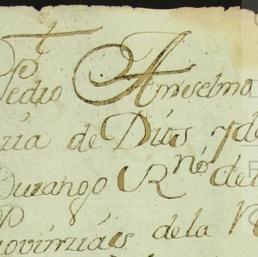 Pedro Anselmo
ria de Dios y de
Durango R.no de
Provincias de la